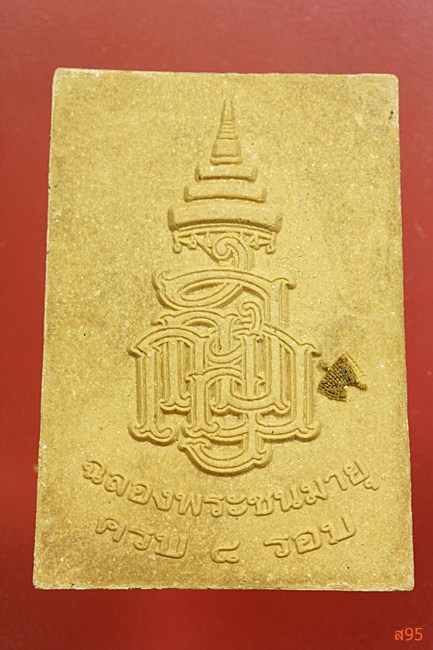 ฉลองพระชนมายุ
ครบ ๔ รอบ
ส95